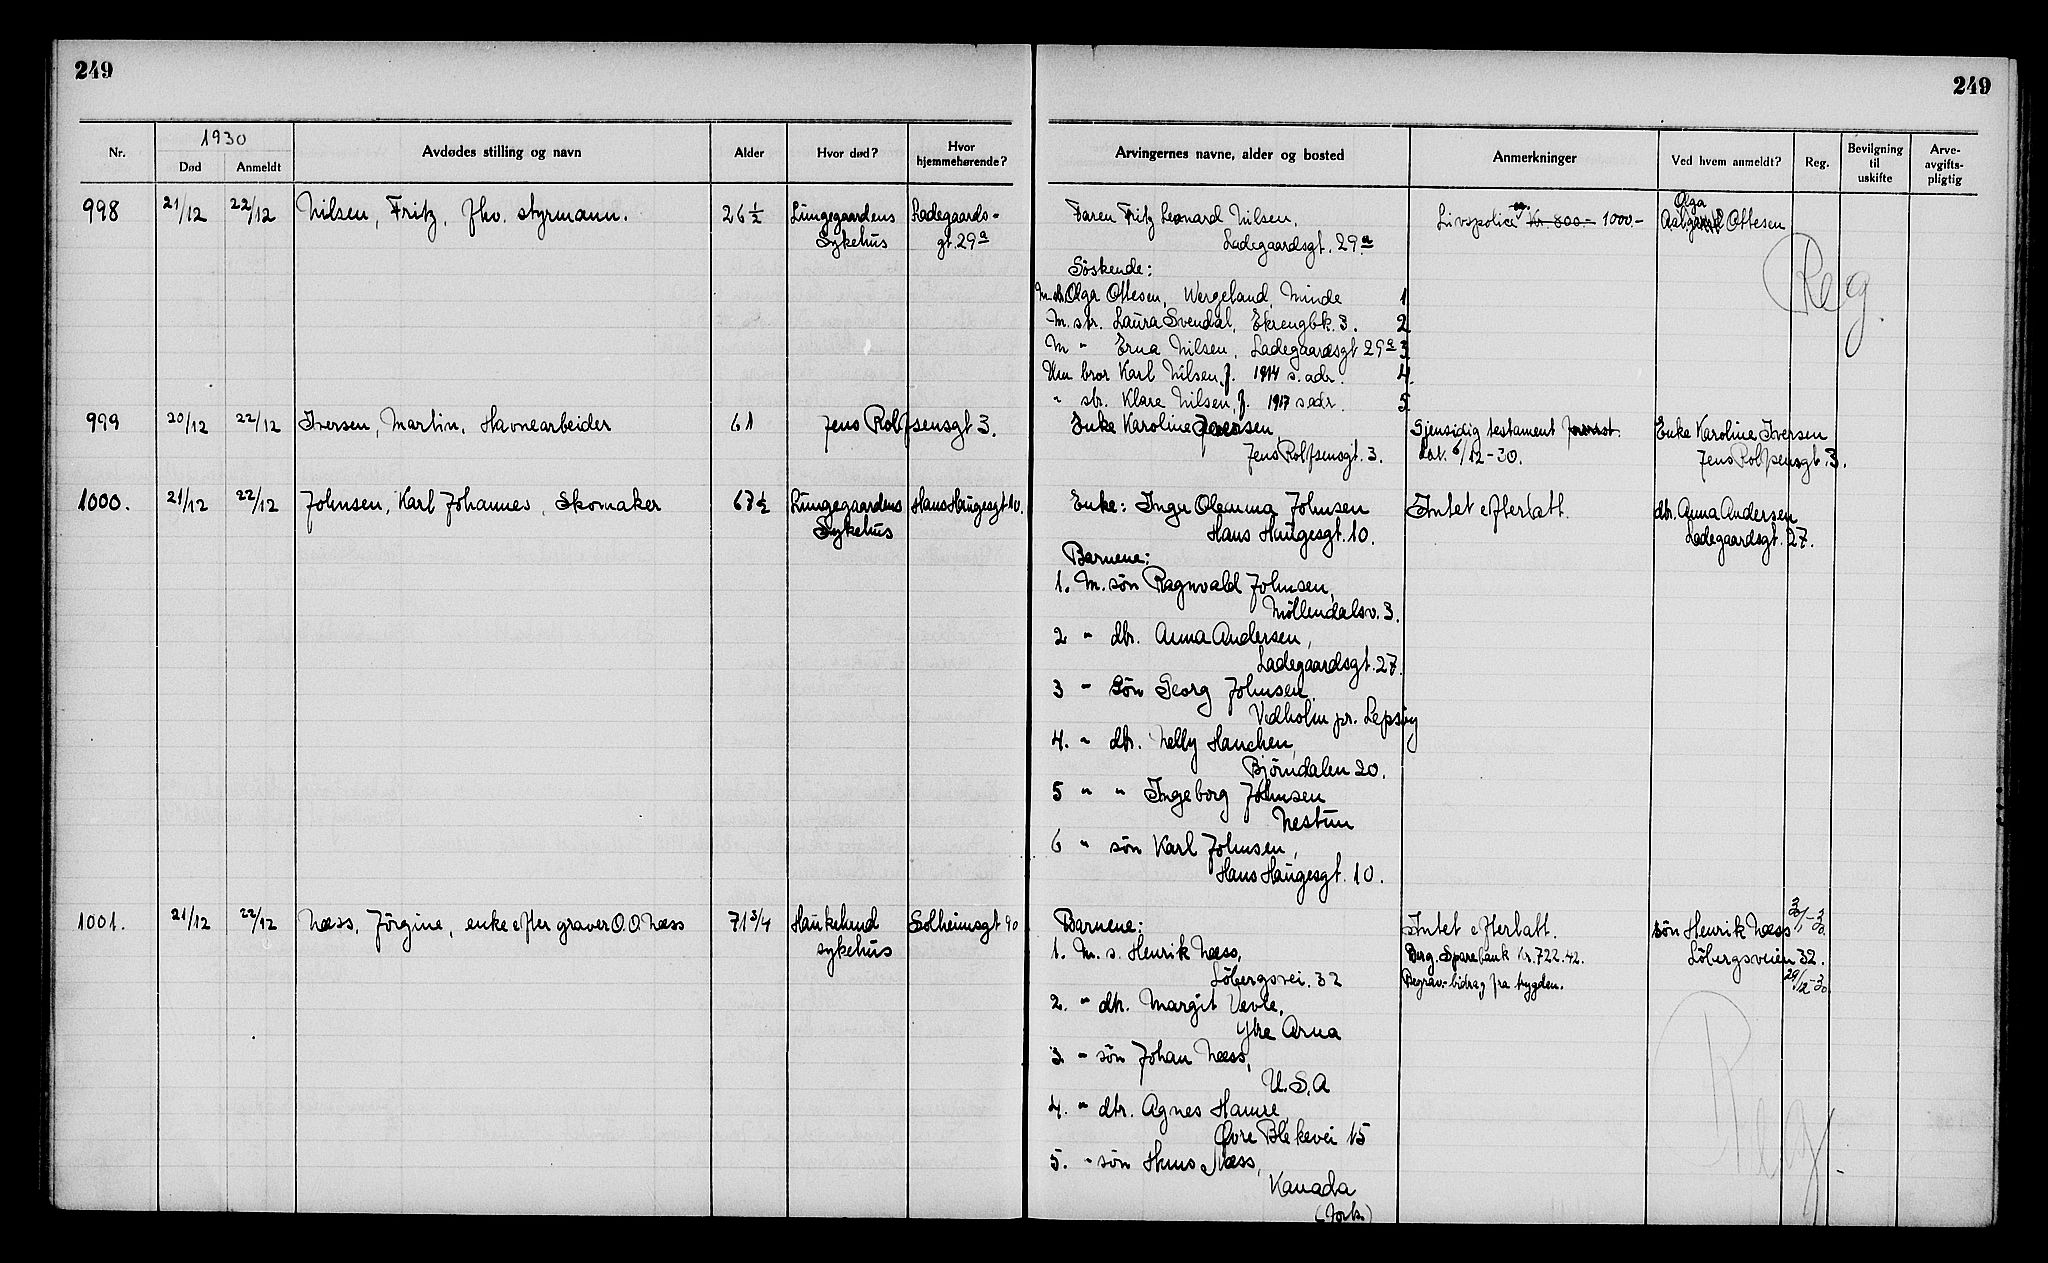 249
249
1930
Nr.
Død
Anmeldt
Avdødes stilling og navn
Alder
Hvor død?
Hvor hjemmehørende?
Arvingernes navne, alder og bosted
Anmerkninger
Ved hvem anmeldt?
Reg.
Bevilgning til uskifte
Arve-avgifts-pligtig
998 21/12 22/12 Nilsen, Fritz, fhv. styrmann. 26 ½ Lungegaardens Ladegaards-
Sykehus gt. 29a
Faren Fritz Leonard Nilsen, Livspolice ca. Kr. 800.- 1000.- Olga
Ladegaardsgt. 29a Ottesen
Søskende:
Reg.
M. str. Olga Ottesen, Wergeland, Minde 1
M. str. Laura Svendal, Ekrengbk. 3. 2
M " Erna Nilsen, Ladegaardsgt 29a 3
Um bror Karl Nilsen, f. 1914 s. adr. 4.
" str. Klare Nilsen, f. 1917 s adr. 5
999 20/12 22/12 Iversen, Martin, Havnearbeider 61 Jens Rolfsensgt 3.
Enke Karoline Iversen, Gjensidig testament Enke Karoline Iversen
Jens Rolfsensgt. 3. dat. 6/12-30. Jens Rolfsensgt. 3.
1000. 21/12 22/12 Johnsen, Karl Johannes, Skomaker 67 ½ Lungegaardens Hans Haugesgt 10.
Sykehus
Enke: Inga Olemma Johnsen Intet efterlatt. dtr. Anna Andersen
Hans Haugesgt. 10. Ladegaardsgt. 27.
Barnene:
1. M. søn Ragnvald Johnsen,
Møllendalsv. 3.
2 " dtr. Anna Andersen,
Ladegaardsgt. 27.
3 " søn Georg Johnsen,
Vedholm pr. Lepsøy
4. " dtr. Nelly Hanchen,
Bjørndalen 20.
5 " " Ingeborg Johnsen
Nestun
6 " søn Karl Johnsen,
Hans Haugesgt. 10.
1001. 21/12 22/12 Næss, Jørgine, enke efter graver O.O. Næss 71 3/4 Haukelund Solheimsgt 90
sykehus
Barnene: Intet efterlatt. søn Henrik Næss
1. M. s. Henrik Næss, Berg. Sparebank Kr. 722.42. Løbergsveien 32.
Løbergsvei. 32 Begrav.- bidrag fra trygden. 29/12-30
2. " dtr. Margit Vevle,
Ytre Arna
3. " søn Johan Næss,
U.S.A
4. " dtr. Agnes Hamre
Øvre Blekevei 15
5. " søn Hans Næss,
Kanada
Reg.